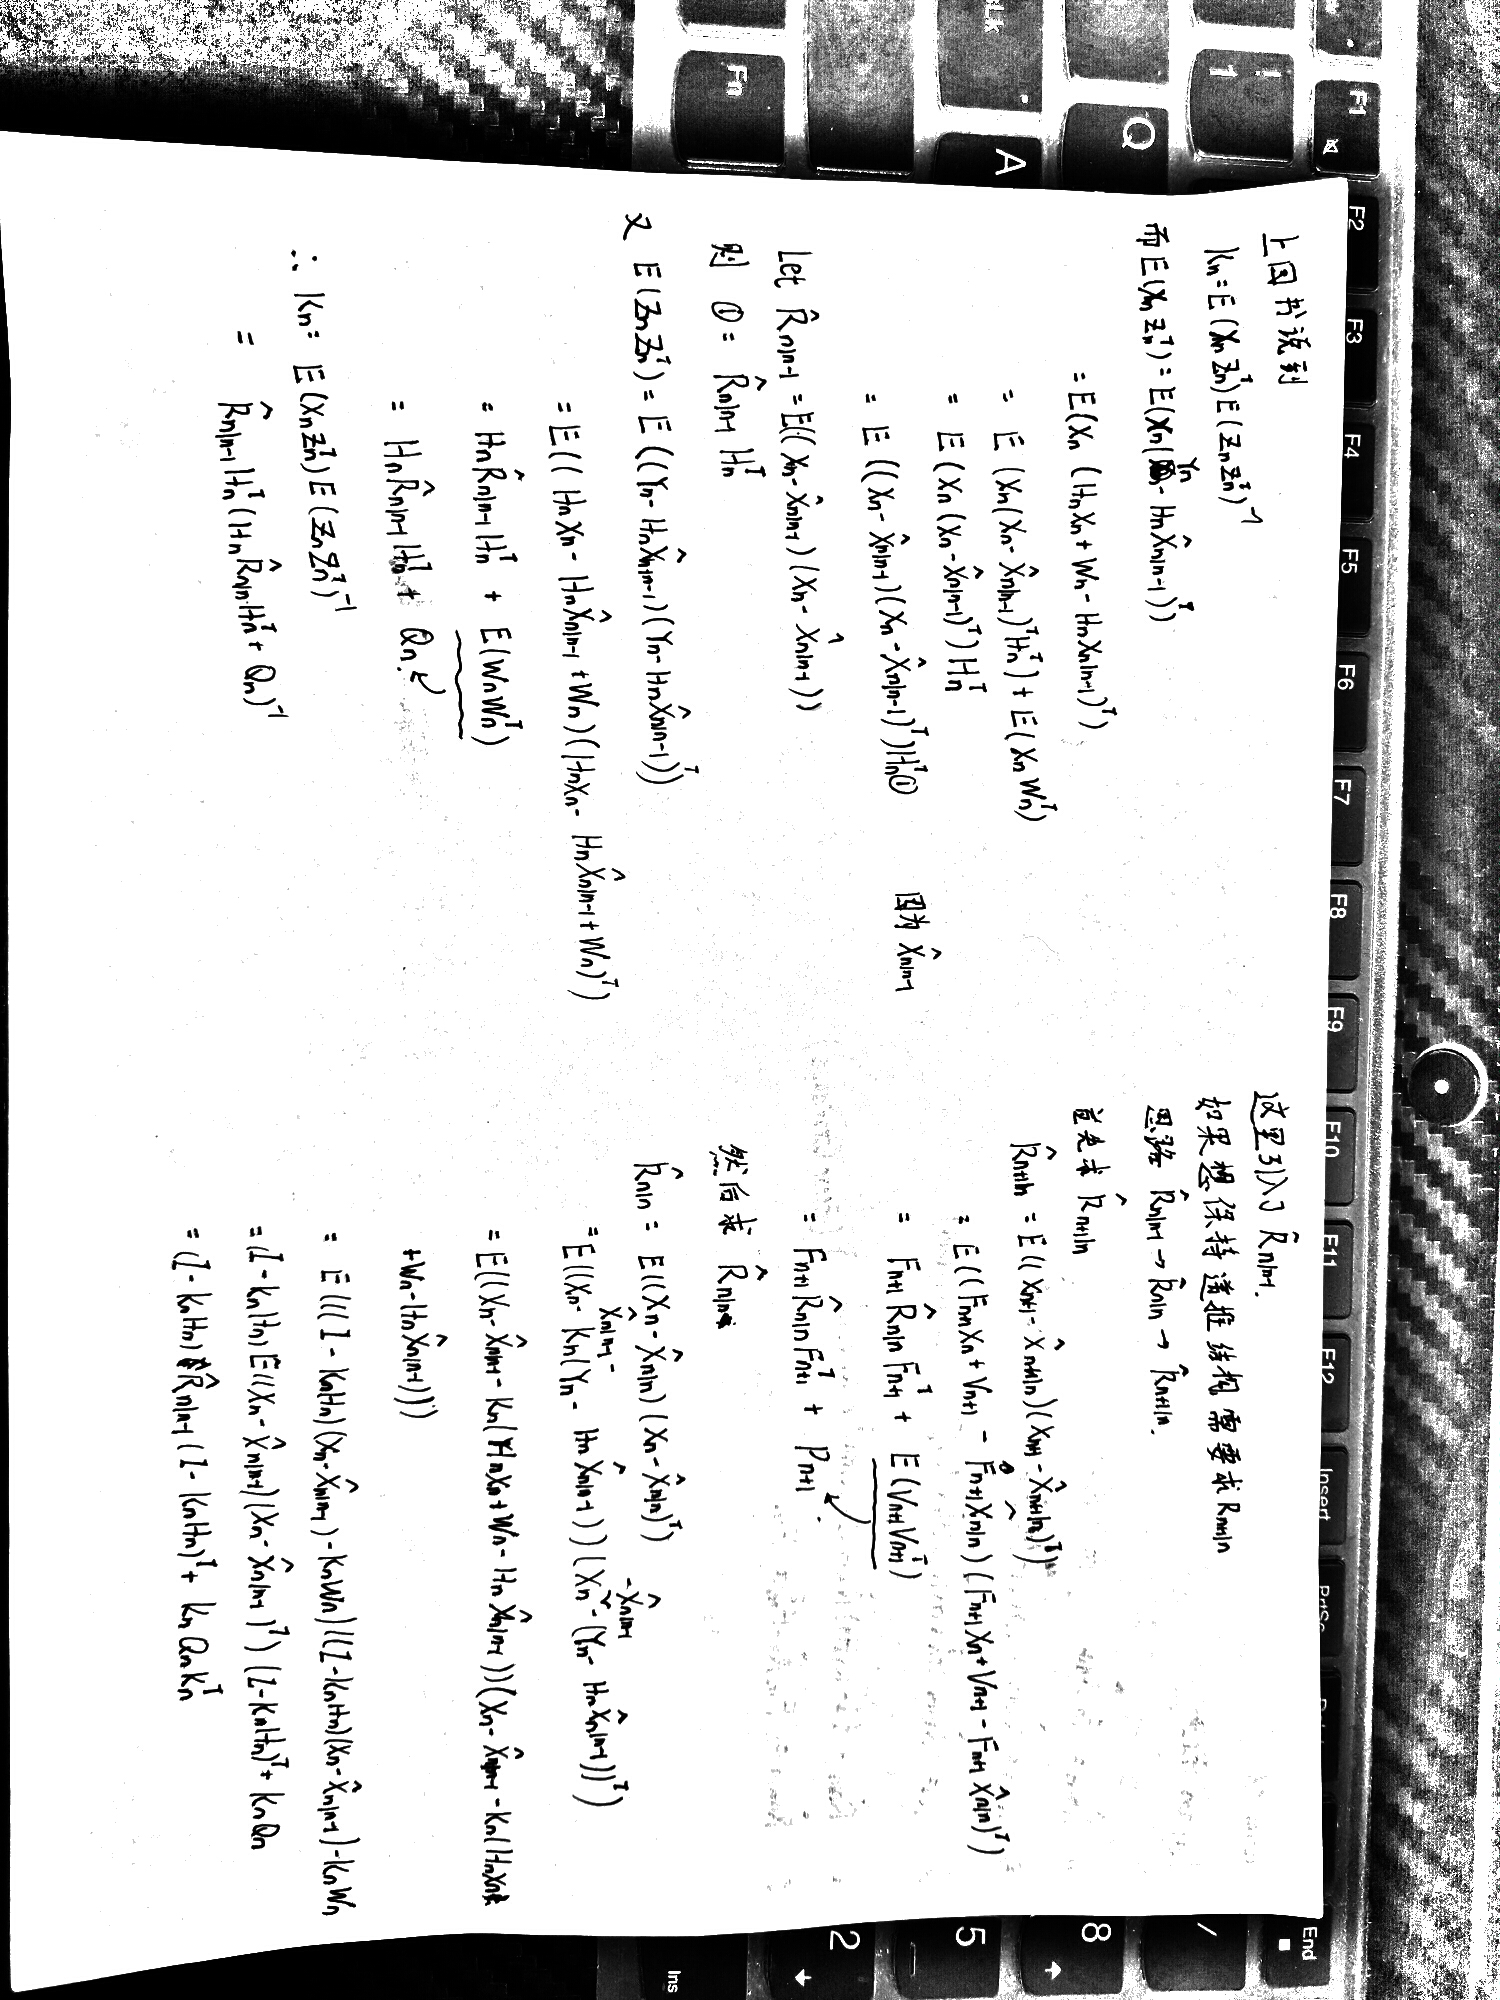 F1
F2
F3
F4
F5
F6
F7
F8
F9
F10
F11
F12
Insert
PrtSc
End
!
1
Q
A
Fn
/
8
5
2
Ins
上回书说到
Kn = E(Xn Zn^T) E(Zn Zn^T)^-1
而 E(Xn Zn^T) = E(Xn(Yn - Hn X̂n|n-1)^T)
= E(Xn (HnXn + Wn - HnXn|n-1)^T)
= E(Xn(Xn - X̂n|n-1)^T Hn^T) + E(Xn Wn^T)
= E(Xn(Xn - X̂n|n-1)^T) Hn^T
= E((Xn - X̂n|n-1)(Xn - X̂n|n-1)^T) Hn^T ① 因为 X̂n|n-1
Let R̂n|n-1 = E((Xn - X̂n|n-1)(Xn - X̂n|n-1))
则 ① = R̂n|n-1 Hn^T
又 E(Zn Zn^T) = E((Yn - Hn X̂n|n-1)(Yn - Hn X̂n|n-1)^T)
= E((HnXn - Hn X̂n|n-1 + Wn)(HnXn - Hn X̂n|n-1 + Wn)^T)
= Hn R̂n|n-1 Hn^T + E(Wn Wn^T)
= Hn R̂n|n-1 Hn^T + Qn.
∴ Kn = E(Xn Zn^T) E(Zn Zn^T)^-1
= R̂n|n-1 Hn^T (Hn R̂n|n Hn^T + Qn)^-1
这里引入了 R̂n|n-1.
如果想保持递推结构需要求 Rn+1|n
思路 R̂n|n-1 → R̂n|n → R̂n+1|n.
首先求 R̂n+1|n
R̂n+1|n = E((Xn+1 - X̂n+1|n)(Xn+1 - X̂n+1|n)^T)
= E((Fn+1 Xn + Vn+1 - Fn+1 X̂n|n)(Fn+1 Xn + Vn+1 - Fn+1 X̂n|n)^T)
= Fn+1 R̂n|n Fn+1^T + E(Vn+1 Vn+1^T)
= Fn+1 R̂n|n Fn+1^T + Pn+1
然后求 R̂n|n
R̂n|n = E((Xn - X̂n|n)(Xn - X̂n|n)^T)
= E((Xn - X̂n|n-1 - Kn(Yn - Hn X̂n|n-1))(Xn - X̂n|n-1 - (Yn - Hn X̂n|n-1))^T)
= E((Xn - X̂n|n-1 - Kn(HnXn + Wn - Hn X̂n|n-1))(Xn - X̂n|n-1 - Kn(HnXn
+ Wn - Hn X̂n|n-1)))
= E(((I - KnHn)(Xn - X̂n|n-1) - KnWn)((I - KnHn)(Xn - X̂n|n-1) - KnWn
= (I - KnHn) E((Xn - X̂n|n-1)(Xn - X̂n|n-1)^T) (I - KnHn)^T + KnQn
= (I - KnHn) R̂n|n-1 (I - KnHn)^T + Kn Qn Kn^T